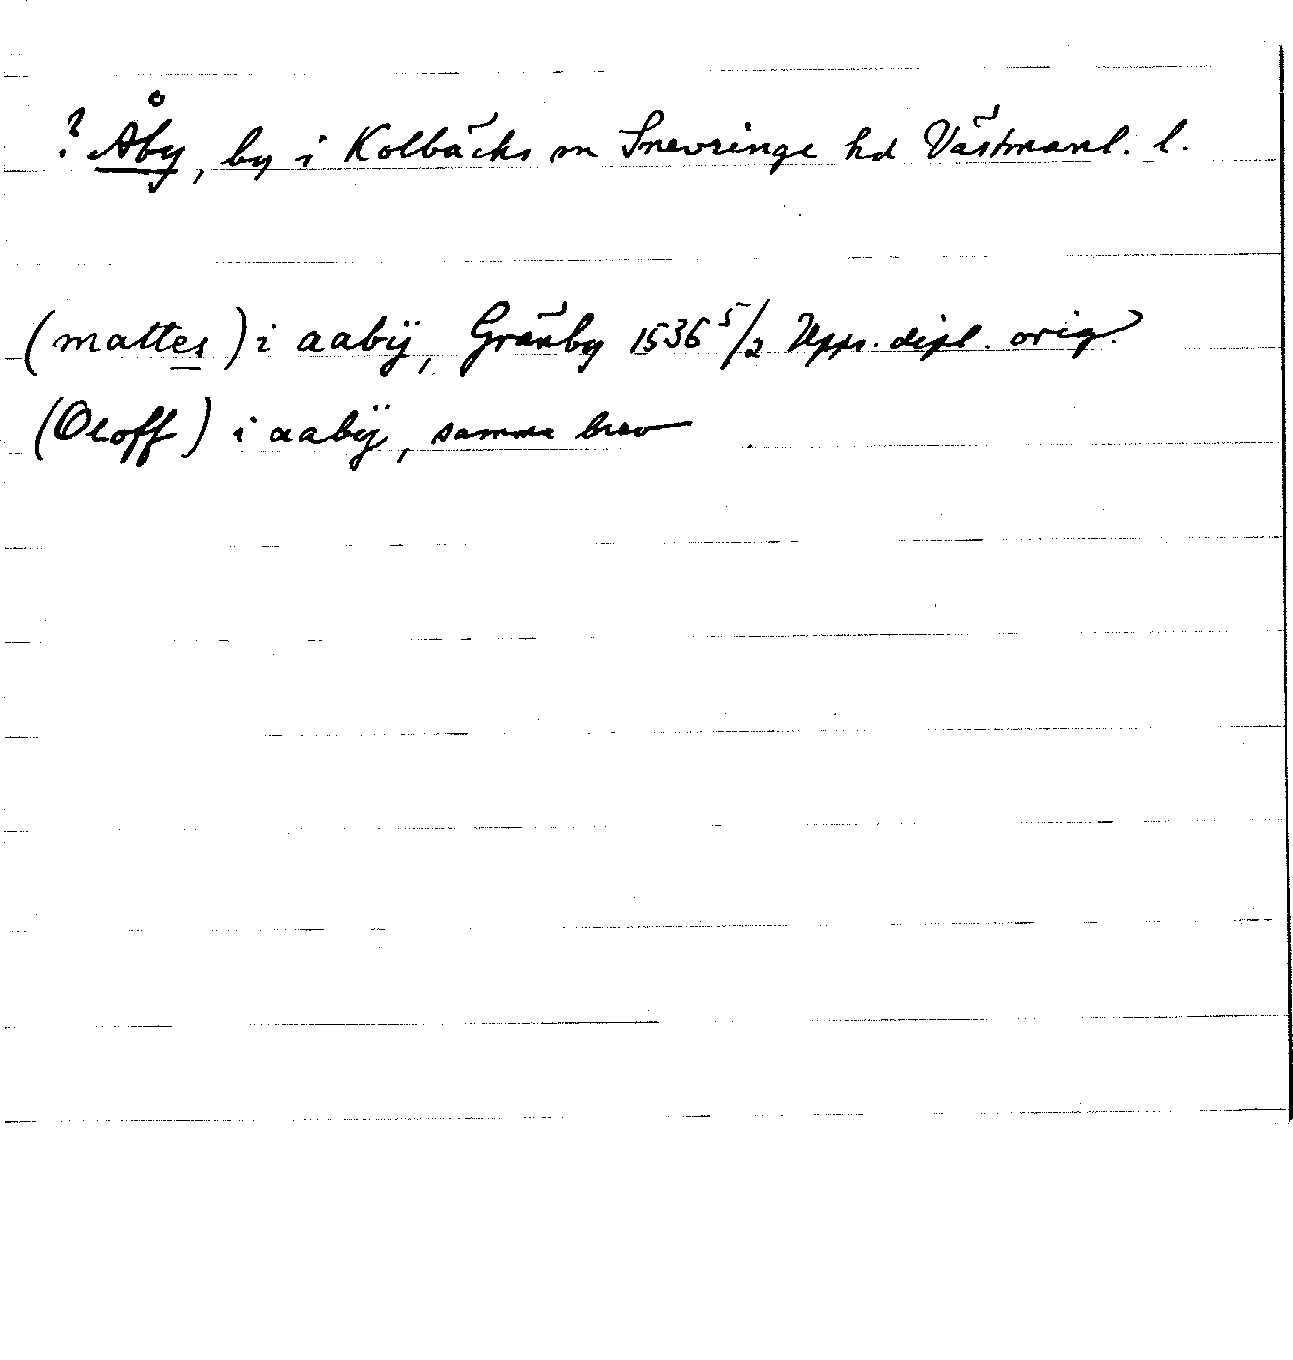 ? Åby, by i Kolbäcks sn Snevringe hd Västmanl. l.
(mattes) i aabÿ, Gränby 1536 5/2 Upps. dipl. orig.
(Oloff) i aabÿ, samma brev